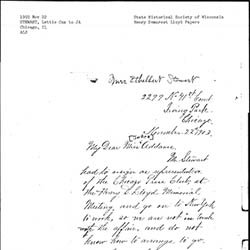 1903 Nov 22
STEWART, Lettie Gum to JA
Chicago, IL
ALS
State Historical Society of Wisconsin
Henry Demarest Lloyd Papers
Mrs Ethelbert Stewart
2299 N. 41st Court
Irving Park
Chicago
November 22, 1903.
[Jane]
My Dear Miss Addams,
Mr. Stewart
had to resign as representative
of the Chicago Press Club, at
the Henry D. Lloyd Memorial
Meeting, and go on to
to work, so we are not in touch
with the affair, and do not
know how to arrange to go.